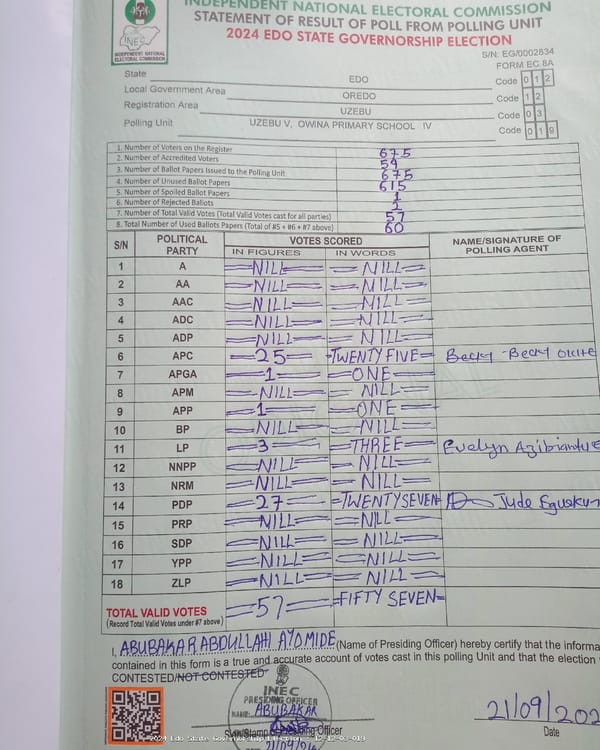 INDEPENDENT NATIONAL ELECTORAL COMMISSION
STATEMENT OF RESULT OF POLL FROM POLLING UNIT
2024 EDO STATE GOVERNORSHIP ELECTION
INEC
INDEPENDENT NATIONAL
ELECTORAL COMMISSION
S/N: EG/0002634
FORM EC 8A
State EDO Code 0 1 2
Local Government Area OREDO Code 1 2
Registration Area UZEBU Code 0 3
Polling Unit UZEBU V, OWINA PRIMARY SCHOOL IV Code 0 1 9
1. Number of Voters on the Register 675
2. Number of Accredited Voters 59
3. Number of Ballot Papers Issued to the Polling Unit 675
4. Number of Unused Ballot Papers 615
5. Number of Spoiled Ballot Papers 1
6. Number of Rejected Ballots 2
7. Number of Total Valid Votes (Total Valid Votes cast for all parties) 57
8. Total Number of Used Ballots Papers (Total of #5 + #6 + #7 above) 60
S/N POLITICAL PARTY VOTES SCORED NAME/SIGNATURE OF POLLING AGENT
IN FIGURES IN WORDS
1 A NILL NILL
2 AA NILL NILL
3 AAC NILL NILL
4 ADC NILL NILL
5 ADP NILL NILL
6 APC 25 TWENTY FIVE Becky Becky
7 APGA 1 ONE
8 APM NILL NILL
9 APP 1 ONE
10 BP NILL NILL
11 LP 3 THREE Evelyn
12 NNPP NILL NILL
13 NRM NILL NILL
14 PDP 27 TWENTY SEVEN Jude
15 PRP NILL NILL
16 SDP NILL NILL
17 YPP NILL NILL
18 ZLP NILL NILL
TOTAL VALID VOTES 57 FIFTY SEVEN
(Record Total Valid Votes under #7 above)
I, ABUBAKAR ABDULLAHI AYOMIDE (Name of Presiding Officer) hereby certify that the informa
contained in this form is a true and accurate account of votes cast in this polling Unit and that the election
CONTESTED/NOT CONTESTED
INEC
PRESIDING OFFICER
NAME: ABUBAKAR
21/09/202
Date
2024 Edo State Governorship Election
21/09/24